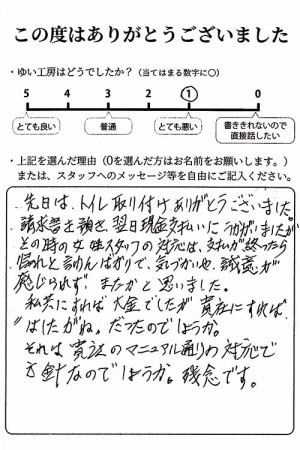 この度はありがとうございました
・ゆい工房はどうでしたか？（当てはまる数字に○）
5 4 3 2 1 0
とても良い 普通 とても悪い 書ききれないので直接話したい
・上記を選んだ理由（0を選んだ方はお名前をお願いします。）
または、スタッフへのメッセージ等を自由にご記入ください。
先日は、トイレ取り付けありがとうございました。
請求書を頂き、翌日現金支払いにうかがいましたが
その時の女性スタッフの対応は、支払が終ったら
帰れと言わんばかりで、気づかいや、誠意が
感じられず またかと思いました。
私共にすれば大金でしたが 貴社にすれば
"はしたがね"だったのでしょうか。
それは貴社のマニュアル通りの対応で
方針なのでしょうか。残念です。